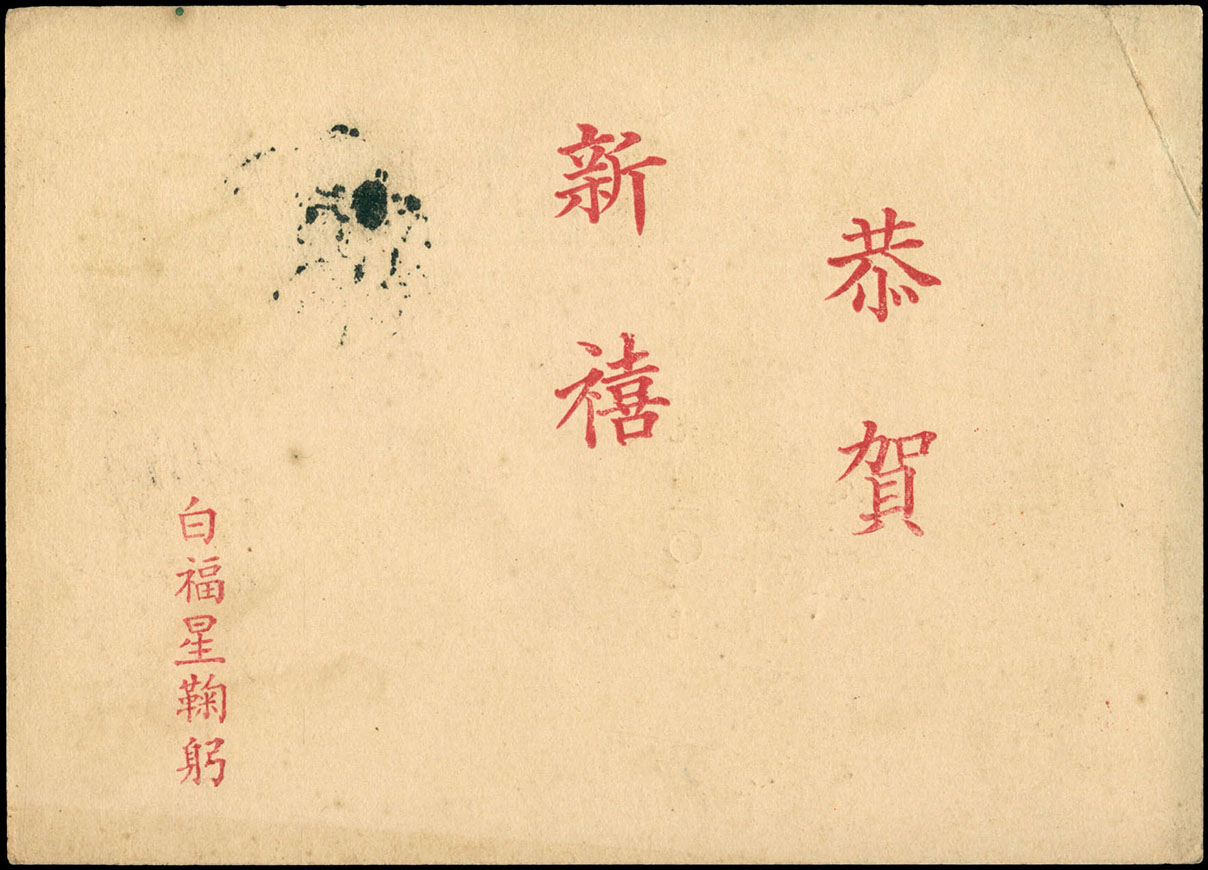 恭賀
新禧
白福星鞠躬